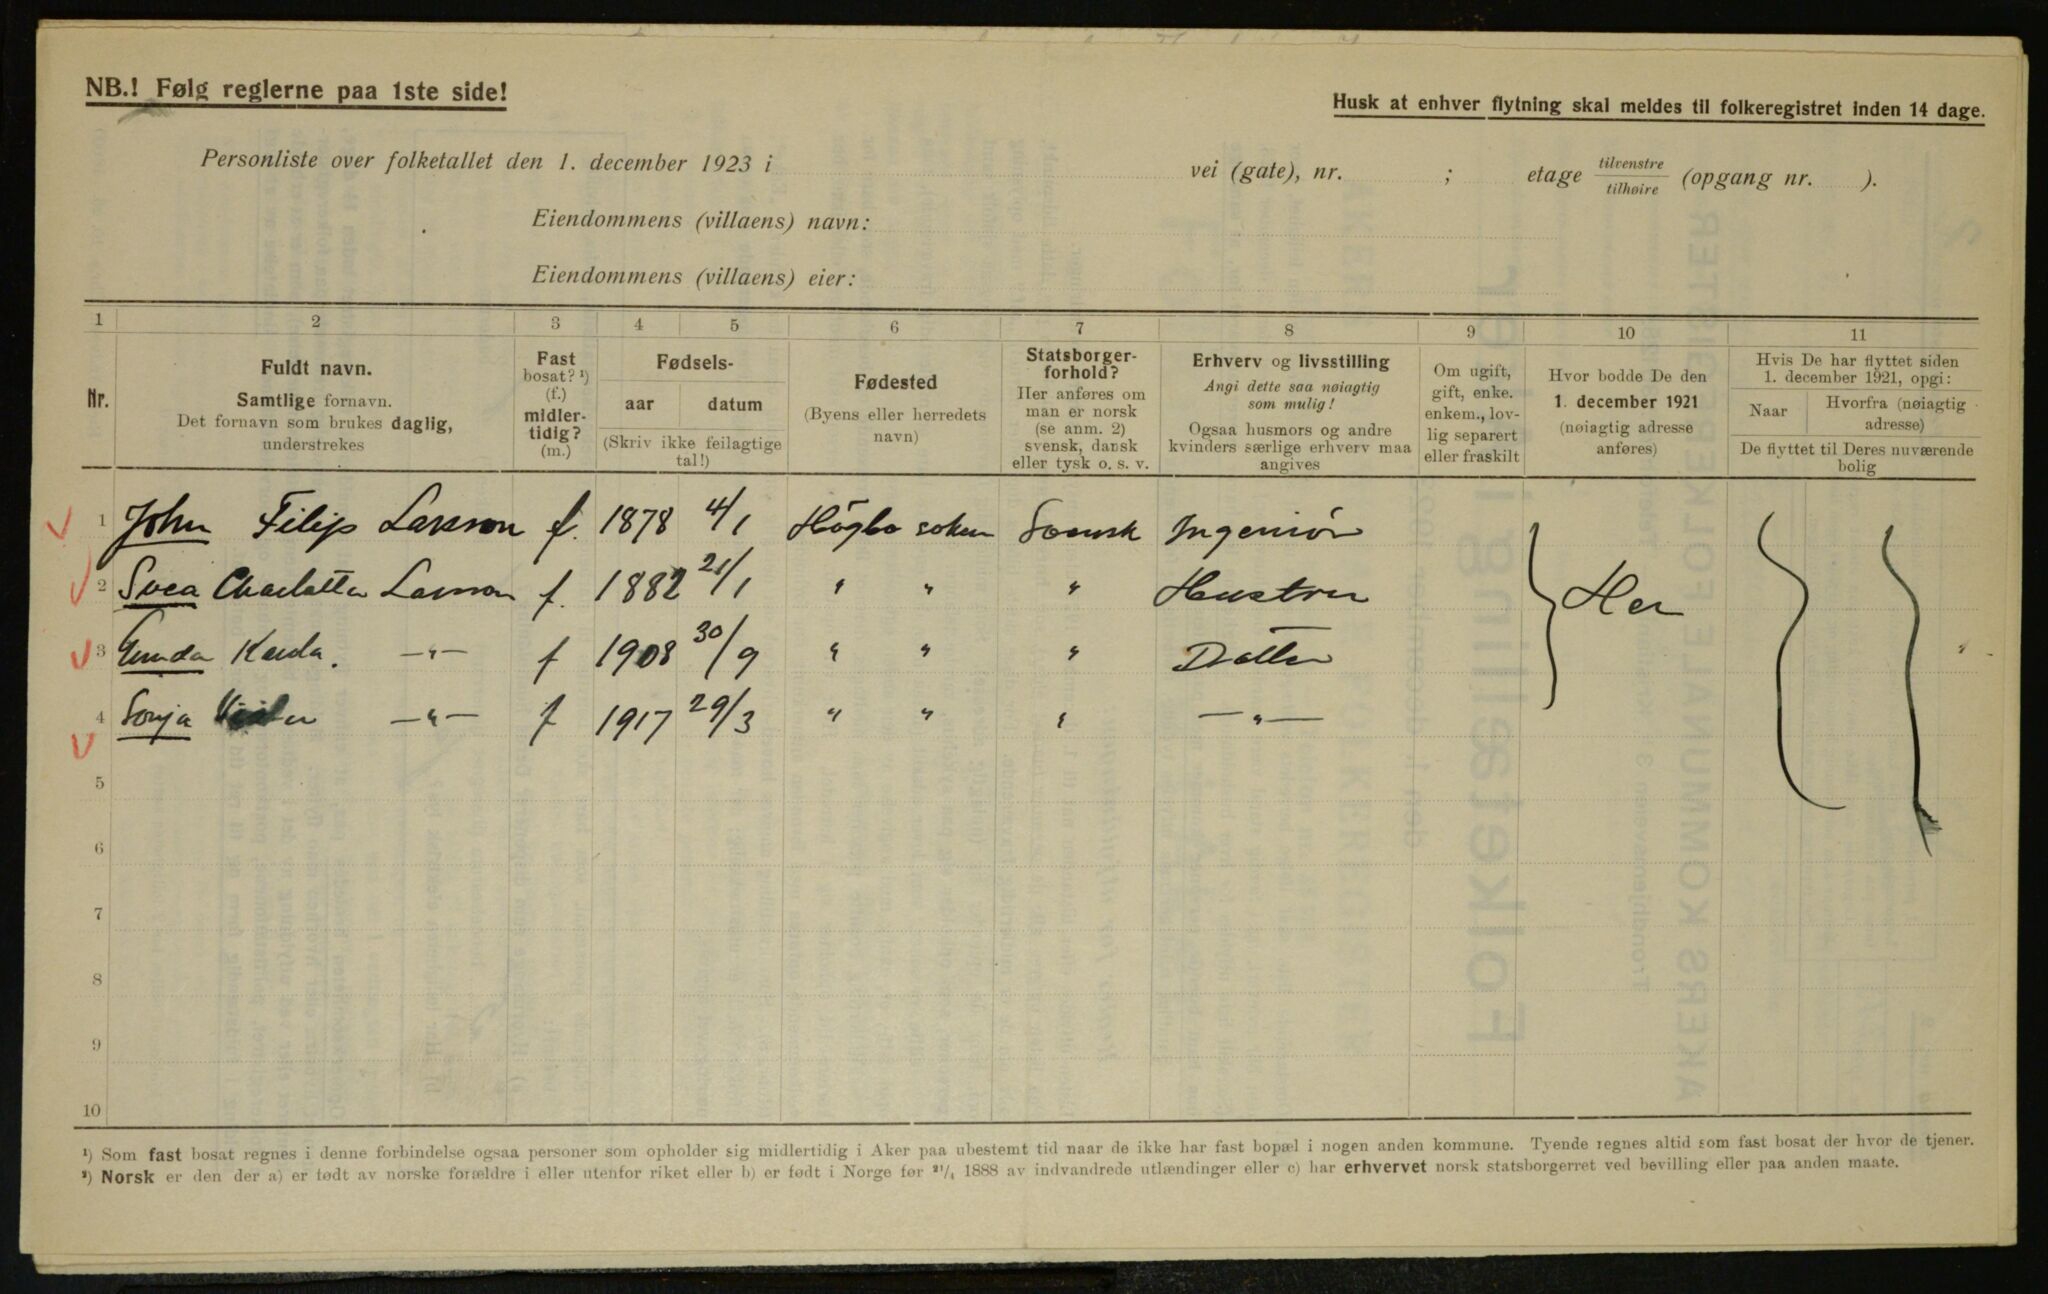 NB.! Følg reglerne paa 1ste side!
Husk at enhver flytning skal meldes til folkeregistret inden 14 dage.
Personliste over folketallet den 1. december 1923 i vei (gate), nr. ; etage tilvenstre tilhøire (opgang nr. ).
Eiendommens (villaens) navn:
Eiendommens (villaens) eier:
1 2 3 4 5 6 7 8 9 10 11
Nr.
Fuldt navn.
Samtlige fornavn.
Det fornavn som brukes daglig,
understrekes
Fast
bosat? ¹)
(f.)
midler-
tidig?
(m.)
Fødsels-
aar datum
(Skriv ikke feilagtige
tal!)
Fødested
(Byens eller herredets
navn)
Statsborger-
forhold?
Her anføres om
man er norsk
(se anm. 2)
svensk, dansk
eller tysk o. s. v.
Erhverv og livsstilling
Angi dette saa nøiagtig
som mulig!
Ogsaa husmors og andre
kvinders særlige erhverv maa
angives
Om ugift,
gift, enke.
enkem., lov-
lig separert
eller fraskilt
Hvor bodde De den
1. december 1921
(nøiagtig adresse
anføres)
Hvis De har flyttet siden
1. december 1921, opgi:
Naar
Hvorfra (nøiagtig
adresse)
De flyttet til Deres nuværende
bolig
1 John Filip Larsson f. 1878 4/1 Högbo soken Svensk Ingeniør
2 Svea Charlotta Larsson f. 1882 21/1 " " " Hustru Her
3 Gunda Karla. —"— f 1908 30/9 " " " Datter
4 Sonja —"— f 1917 29/3 " " " —"—
5
6
7
8
9
10
¹) Som fast bosat regnes i denne forbindelse ogsaa personer som opholder sig midlertidig i Aker paa ubestemt tid naar de ikke har fast bopæl i nogen anden kommune. Tyende regnes altid som fast bosat der hvor de tjener.
²) Norsk er den der a) er født av norske forældre i eller utenfor riket eller b) er født i Norge før ²¹/₄ 1888 av indvandrede utlændinger eller c) har erhvervet norsk statsborgerret ved bevilling eller paa anden maate.